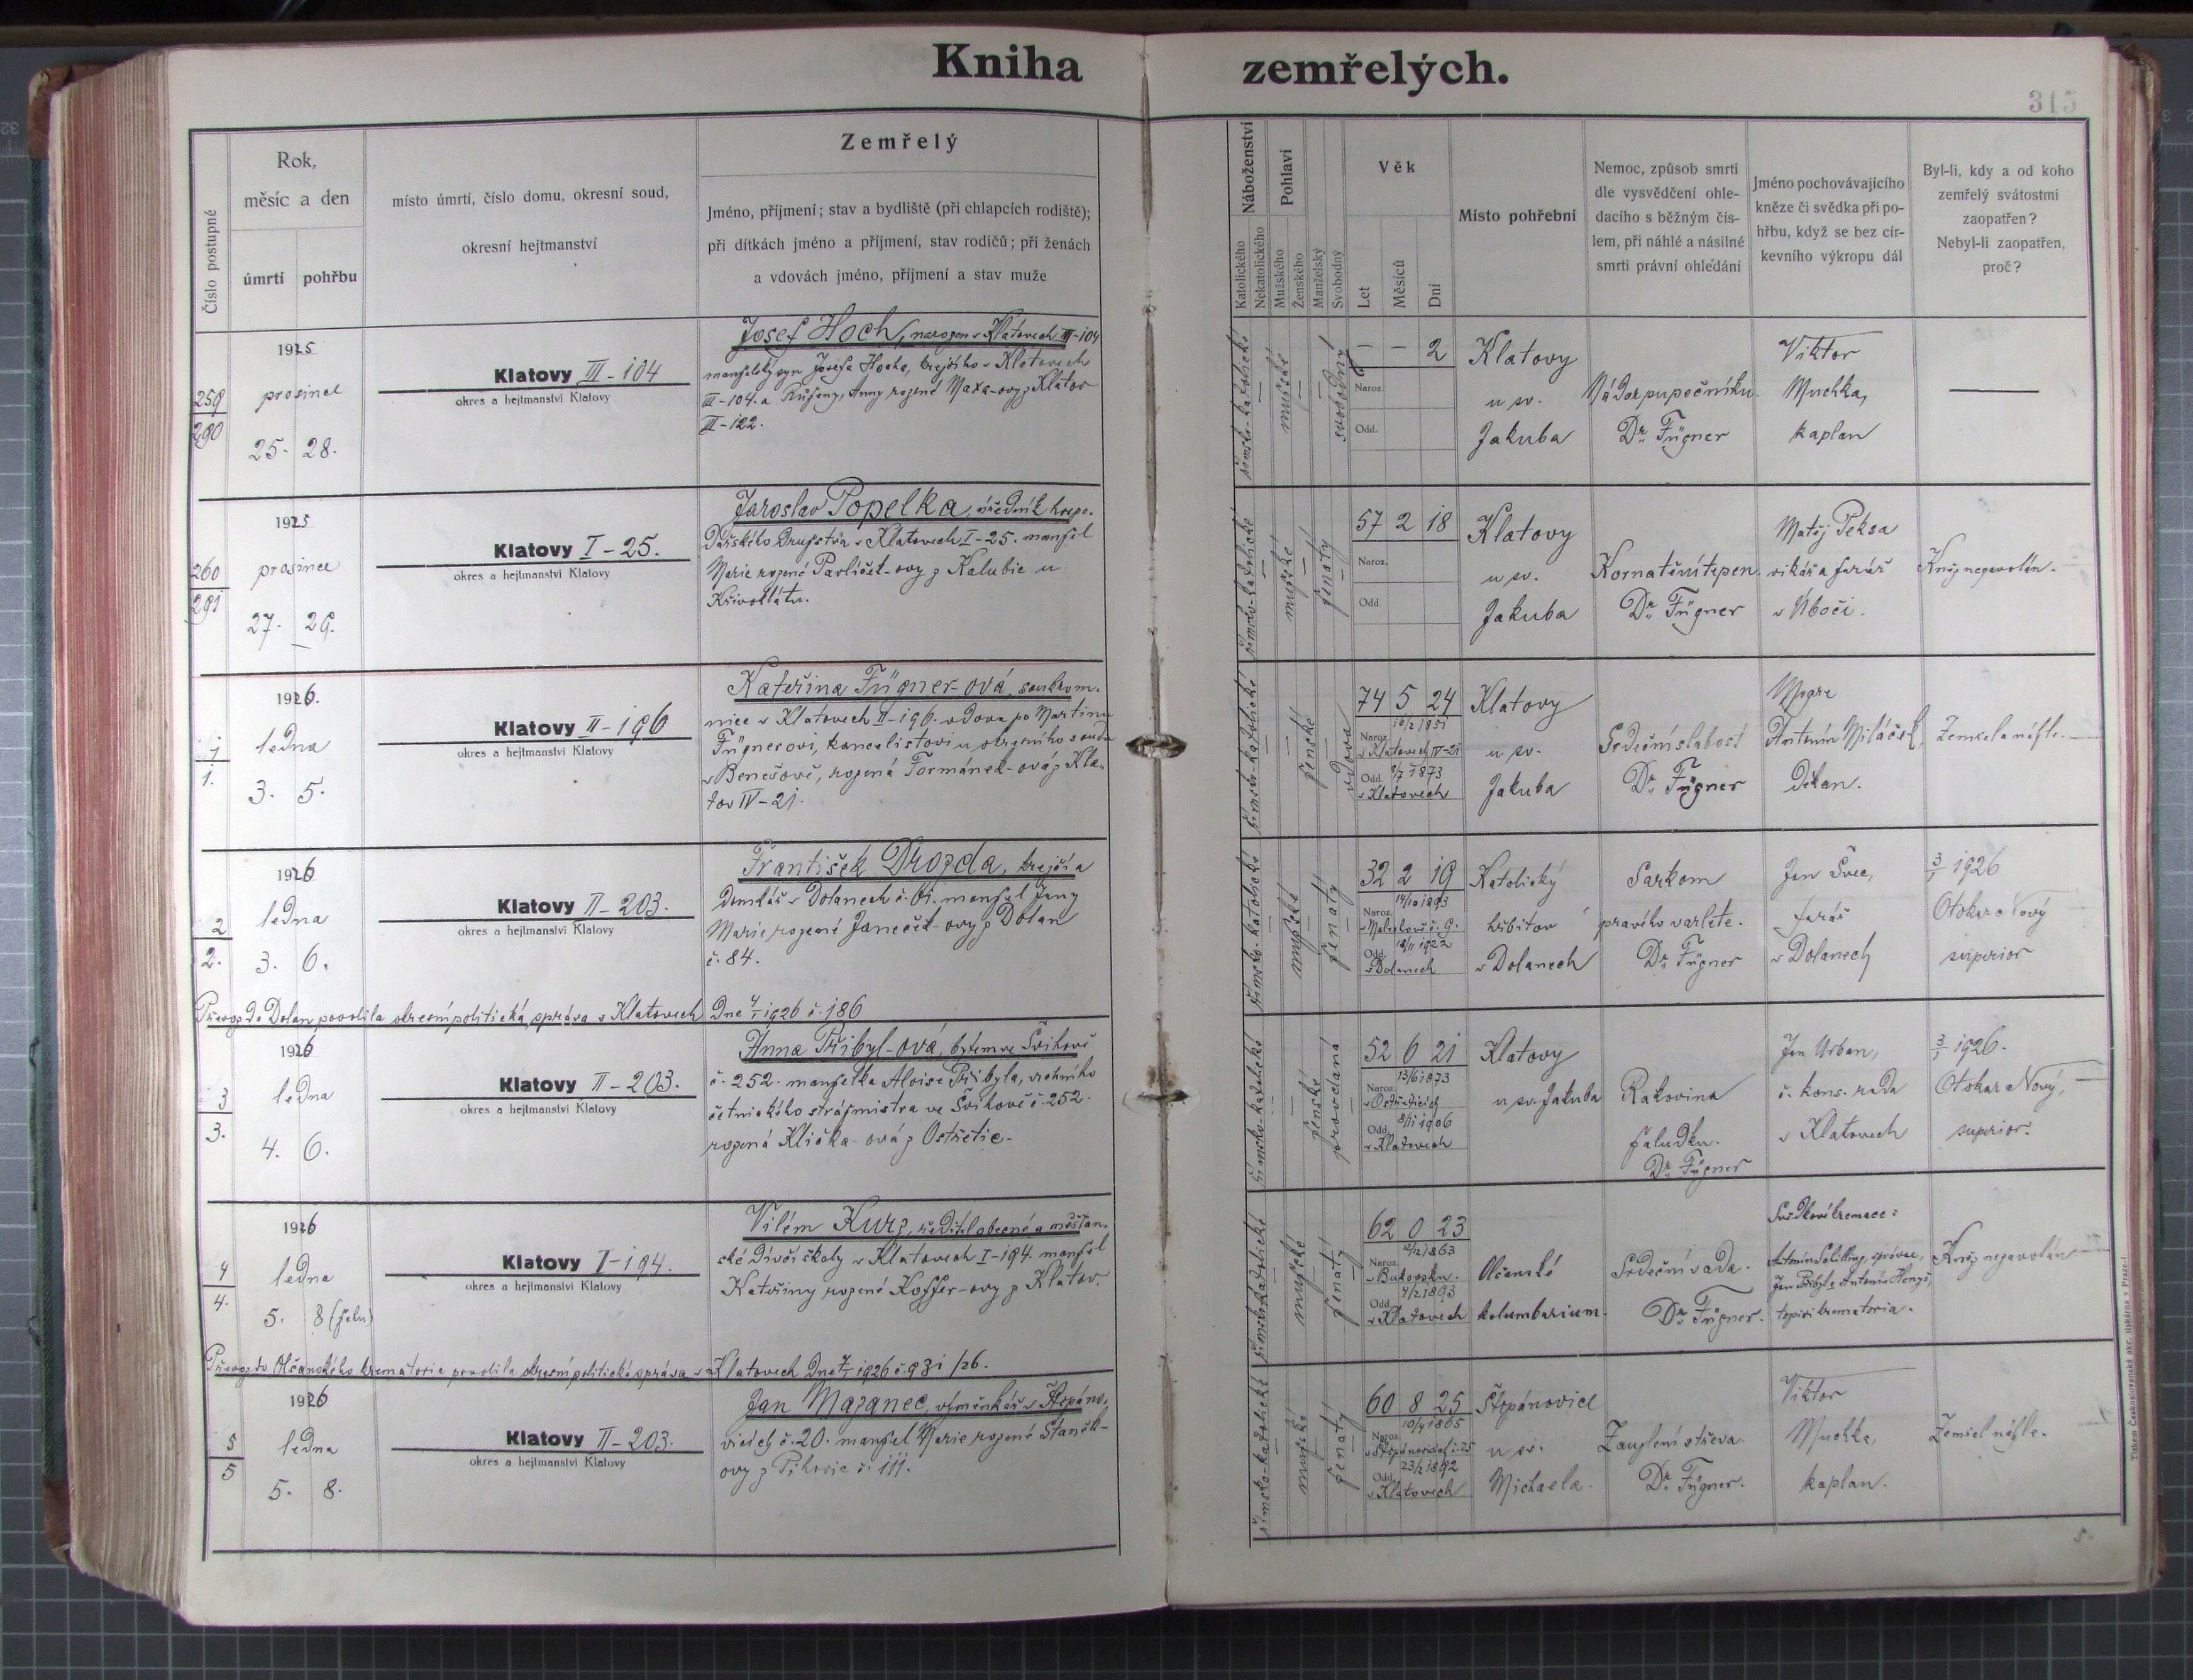 Kniha zemřelých.
315
Číslo postupné
Rok,
měsíc a den
úmrtí pohřbu
místo úmrtí, číslo domu, okresní soud,
okresní hejtmanství
Zemřelý
Jméno, příjmení; stav a bydliště (při chlapcích rodiště);
při dítkách jméno a příjmení, stav rodičů; při ženách
a vdovách jméno, příjmení a stav muže
Náboženství
Katolického
Nekatolického
Pohlaví
Mužského
Ženského
Manželský
Svobodný
Věk
Let
Měsíců
Dní
Místo pohřební
Nemoc, způsob smrti
dle vysvědčení ohle-
dacího s běžným čís-
lem, při náhlé a násilné
smrti právní ohledání
Jméno pochovávajícího
kněze či svědka při po-
hřbu, když se bez cír-
kevního výkropu dál
Byl-li, kdy a od koho
zemřelý svátostmi
zaopatřen?
Nebyl-li zaopatřen,
proč?
259
290
1925
prosince
25. 28.
Klatovy III-104
okres a hejtmanství Klatovy
Josef Hoch, narozen v Klatovech III-104
manželský syn Josefa Hocha, krejčího v Klatovech
III-104. a Růženy, Anny rozené Maxa-ovy z Klatov
III-122.
římsko-katolické
mužské
svobodný
- - 2
Naroz.
Odd.
Klatovy
u sv.
Jakuba
Nádor pupečníku.
Dr. Fügner
Viktor
Muchka,
kaplan
260
291
1925
prosince
27. 29.
Klatovy I-25.
okres a hejtmanství Klatovy
Jaroslav Popelka, úředník hospo-
dářského družstva v Klatovech I-25. manžel
Marie rozené Pavlíček-ovy z Kalubic u
Křivoklátu.
římsko-katolické
mužské
ženatý
57 2 18
Naroz.
Odd.
Klatovy
u sv.
Jakuba
Kornatění tepen.
Dr. Fügner
Matěj Peksa
vikář a farář
v Úboči.
Kněz nezavolán.
1
1.
1926.
ledna
3. 5.
Klatovy II-196
okres a hejtmanství Klatovy
Kateřina Fügner-ová, soukrom-
nice v Klatovech II-196. vdova po Martinu
Fügnerovi, kancelistovi u okresního soudu
v Benešově, rozená Formánek-ová z Kla-
tov IV-21.
římsko-katolické
ženské
vdova
74 5 24
10/7 1851
Naroz.
v Klatovech IV-21
Odd. 8/7 1873
v Klatovech
Klatovy
u sv.
Jakuba
Srdeční slabost
Dr. Fügner
Msgre
Antonín Miláček,
děkan.
Zemřela náhle.
2
2.
1926
ledna
3. 6.
Klatovy II-203.
okres a hejtmanství Klatovy
František Drozda, krejčí a
domkář v Dolanech č. 81. manžel Jany
Marie rozené Janeček-ovy z Dolan
č. 84.
Převoz do Dolan povolila okresní politická správa v Klatovech dne 4/1 1926 č. 186
římsko-katolické
mužské
ženatý
32 2 19
14/10 1893
Naroz.
Odd. 18/11 1922
v Dolanech
Katolický
hřbitov
v Dolanech
Sarkom
pravého varlete.
Dr. Fügner
Jan Švec,
farář
v Dolanech
3/1 1926
Otokar Nový
superior
3
3.
1926
ledna
4. 6.
Klatovy II-203.
okres a hejtmanství Klatovy
Anna Přibyl-ová, bytem ve Švihově
č. 252. manželka Aloise Přibyla, vrchního
četnického strážmistra ve Švihově č. 252.
rozená Klička-ová z Ostřetic.
římsko-katolické
ženské
provdaná
52 6 21
13/6 1873
Naroz.
v Ostřeticích
Odd. 8/11 1906
v Klatovech
Klatovy
u sv. Jakuba
Rakovina
žaludku.
Dr. Fügner
Jan Urban,
č. kons. rada
v Klatovech
3/1 1926.
Otokar Nový,
superior.
4
4.
1926
ledna
5. 8 (žehu)
Klatovy I-194.
okres a hejtmanství Klatovy
Vilém Kurz, ředitel obecné a měšťan-
ské dívčí školy v Klatovech I-194. manžel
Kateřiny rozené Koffer-ovy z Klatov.
Převoz do Olšanského krematoria povolila okresní politická správa v Klatovech dne 7/1 1926 č. 931/26.
římsko-katolické
mužské
ženatý
62 0 23
12/12 1863
Naroz.
v Bukovsku.
Odd. 4/2 1893
v Klatovech
Olšanské
kolumbarium.
Srdeční vada.
Dr. Fügner.
Svědkové kremace:
Antonín Schilling, správce,
Jan Přibyl a Antonín Hengš,
topiči krematoria.
Kněz nezavolán
5
5
1926
ledna
5. 8.
Klatovy II-203.
okres a hejtmanství Klatovy
Jan Mazanec, výměnkář v Štěpáno-
vicích č. 20. manžel Marie rozené Staněk-
ovy z Tihovic č. 111.
římsko-katolické
mužské
ženatý
60 8 25
10/4 1865
Naroz.
v Štěpánovicích č. 25
Odd. 23/2 1892
v Klatovech
Štěpánovice
u sv.
Michaela.
Zauzlení střeva.
Dr. Fügner.
Viktor
Muchka,
kaplan.
Zemřel náhle.
Tiskem Českoslovanská akc. tiskárna v Praze-I.